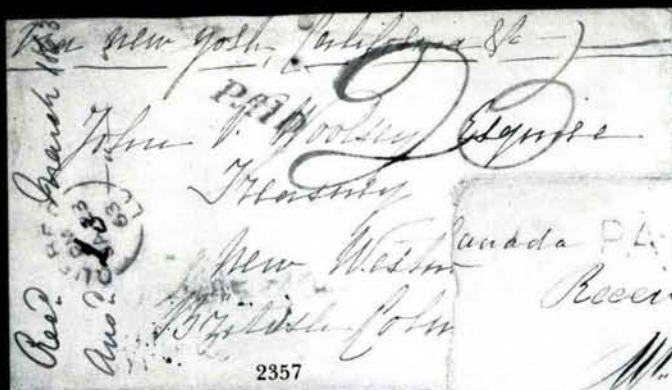 Via new york, California &c
PAID
John V. Woolsey Esquire
Treasury
New Westm
British Colm
Recd March 1863
Ansd
Canada PA
Recei
2357